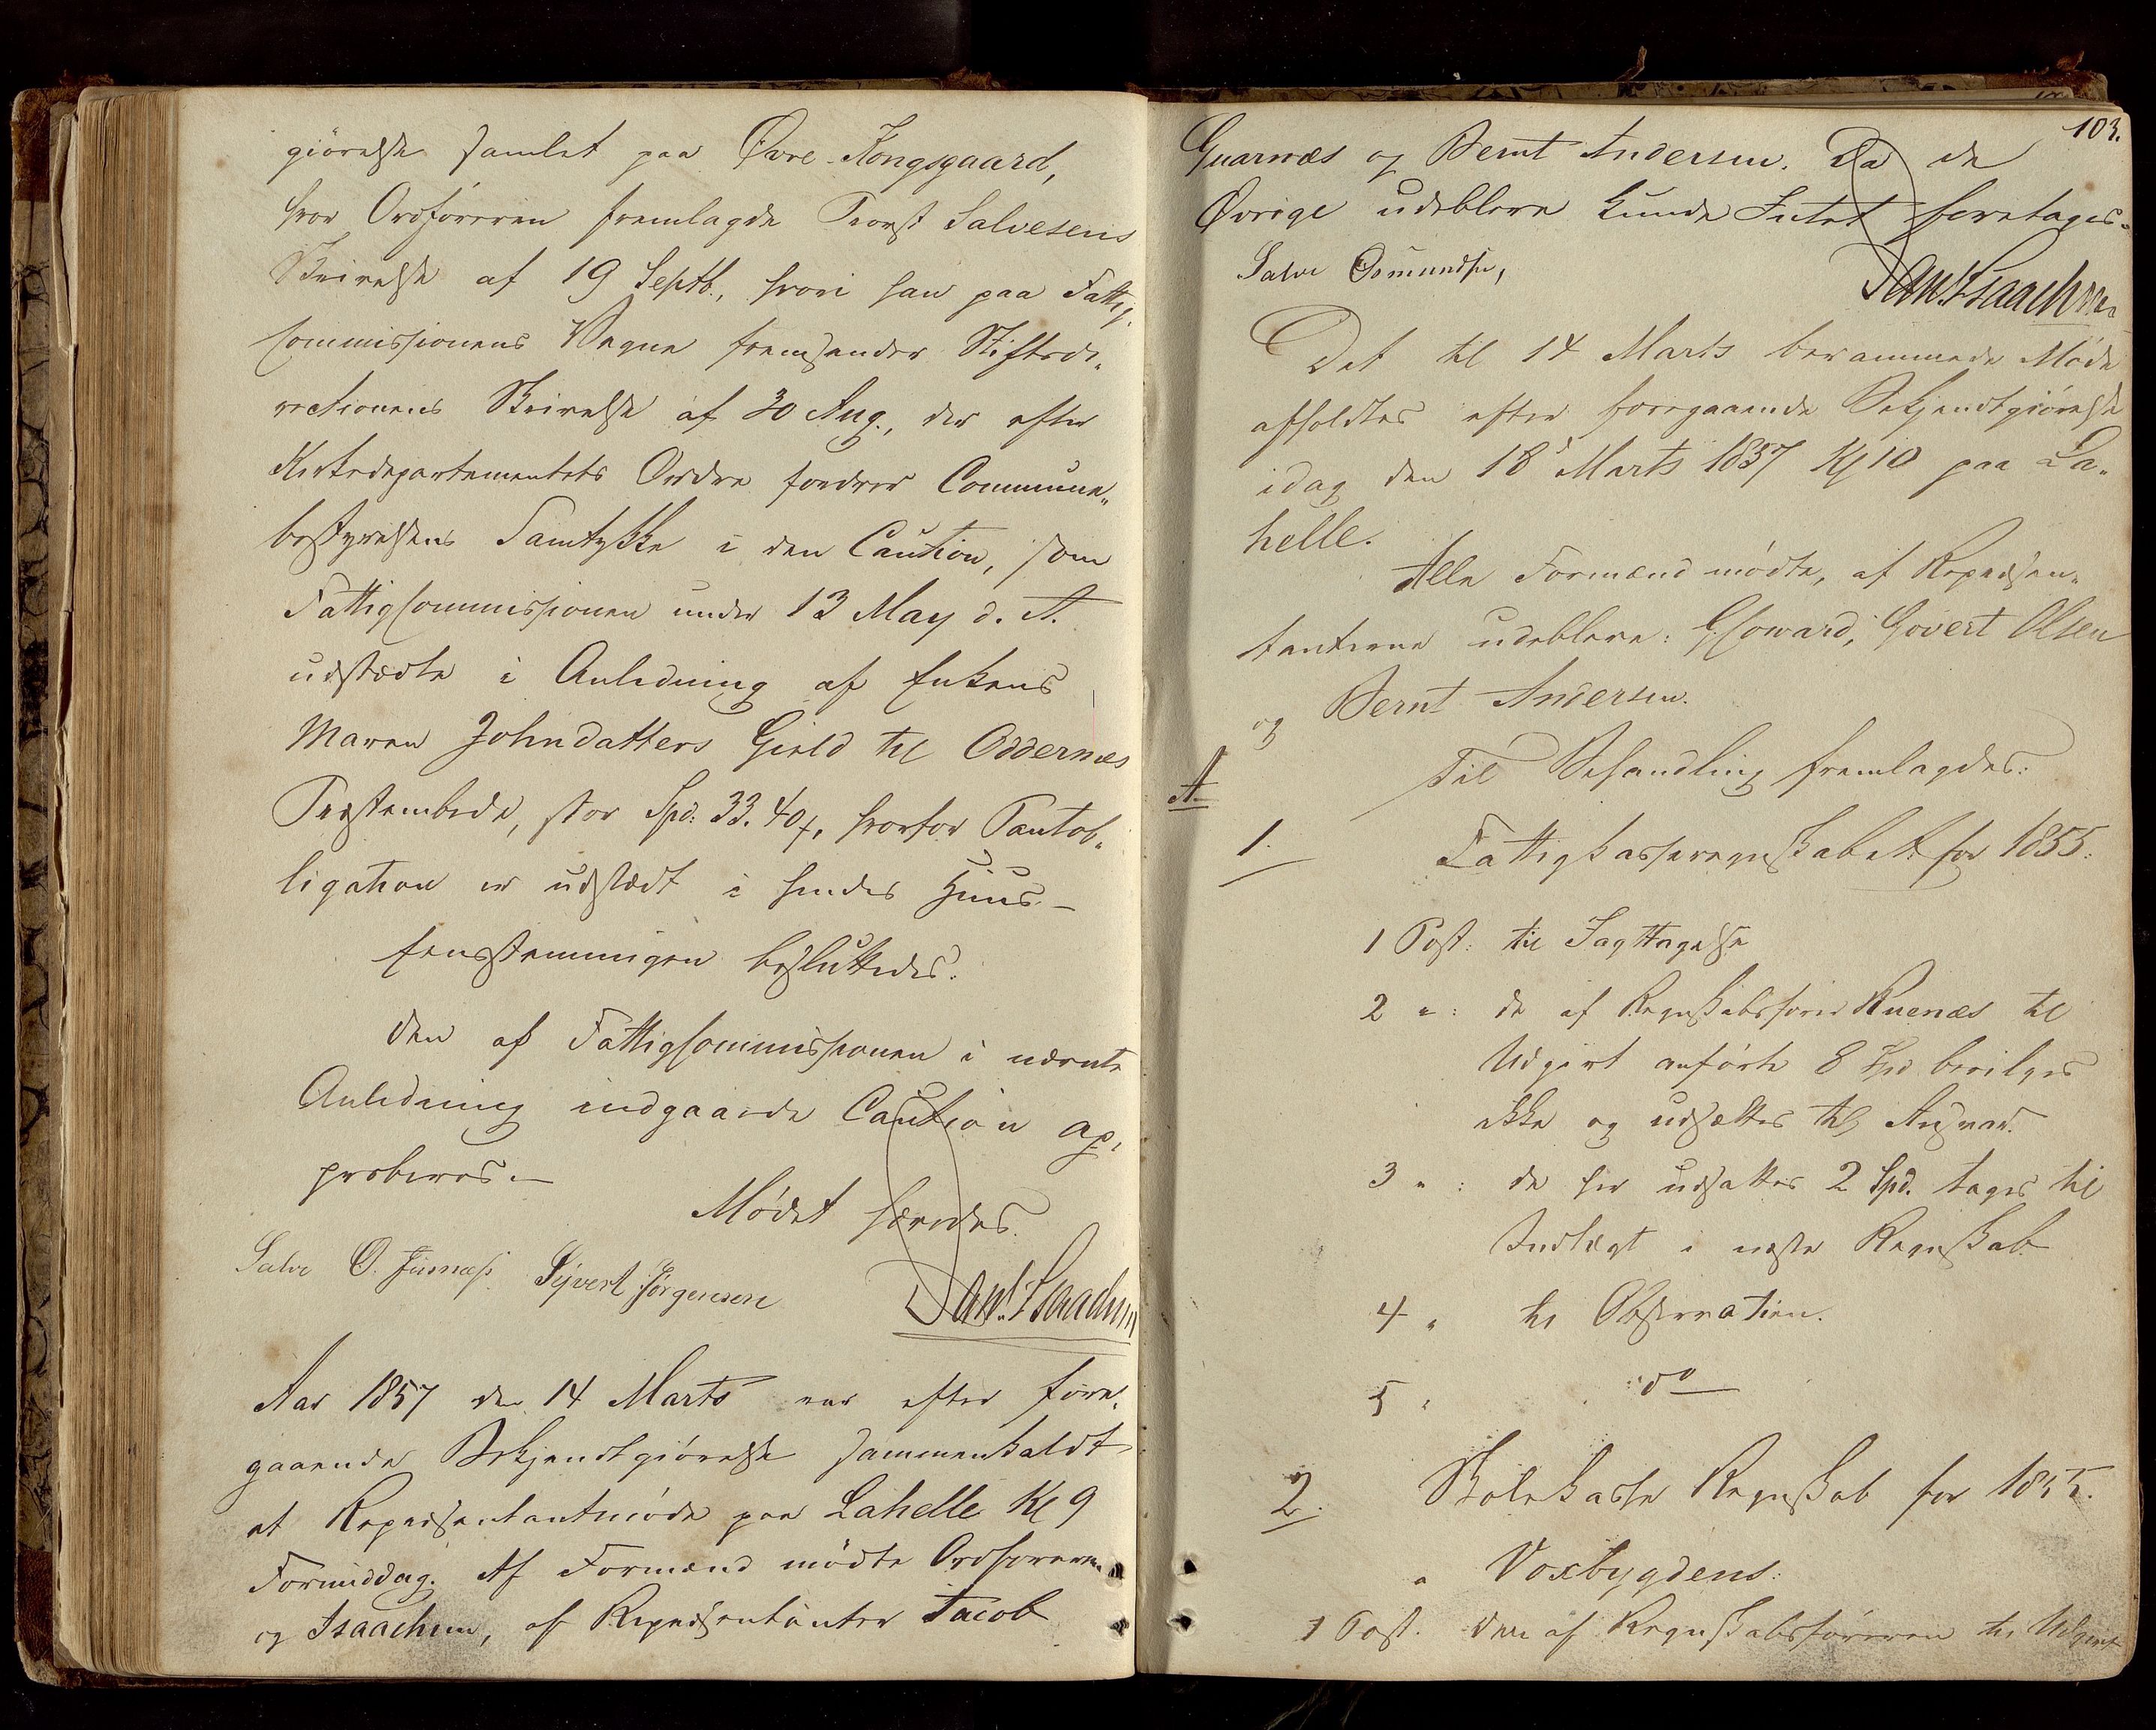 giörelse samlet paa Øvre-Kongsgaard,
hvor Ordföreren fremlagde Provst Salvesens
Skrivelse af 19 Septb., hvori han paa Fattig-
commissionens Vegne fremsender Stiftsdi-
rectionens Skrivelse af 30 Aug., der efter
Kirkedepartementets Ordre fordrer Commune-
bestyrelsens Samtykke i den Caution, som
Fattigcommissionen under 13 May d. A.
udstædte i Anledning af Enkens
Maren Johndatters Gield til Oddernæs
Præstembede, stor Spd: 33. 40 ß, hvorfor Pantob-
ligation er udstædt i hendes Huus.—
Eensstemmigen besluttedes:
Den af Fattigcommissionen i nævnte
Anledning indgaaede Caution ap-
proberes.—
Mødet hævedes.
Salve O. Sivert Jørgensen Dan. Isaachsen
Aar 1857 den 14 Marts var efter fore-
gaaende Bekjendtgiörelse sammenkaldt
et Repræsentantmöde paa Lahelle Kl 9
Formiddag. Af Formænd mödte Ordföreren
og Isaachsen, af Repræsentanter Jacob
103.
Quarnæs og Bernt Andersen. Da de
Øvrige udebleve kunde Intet foretages.
Salve Osmundsen, Dan. Isaachsen
Det til 14 Marts berammede Möde
afholdtes efter foregaaende Bekjendtgiörelse
idag den 18 Marts 1857 Kl 10 paa La-
helle.
Alle Formænd mödte, af Repræsen-
tanterne udebleve: Howard, Govert Olsen
og Bernt Andersen.
Til Behandling fremlagdes:
A
1. Fattigkasseregnskabet for 1855:
1 Post: til Iagttagelse
2 " : de af Regnskabsfører Ruenæs til
Udgivt anförte 8 Spd bevilges
ikke og udsættes til Ansvar.
3 " : de her udsattes 2 Spd. tages til
Indtægt i næste Regnskab
4 " til Observation.
5 " do
2. Skolekasse Regnskab for 1855.
a Voxbygdens:
1 Post. Den af Regnskabsføreren til Udgivt